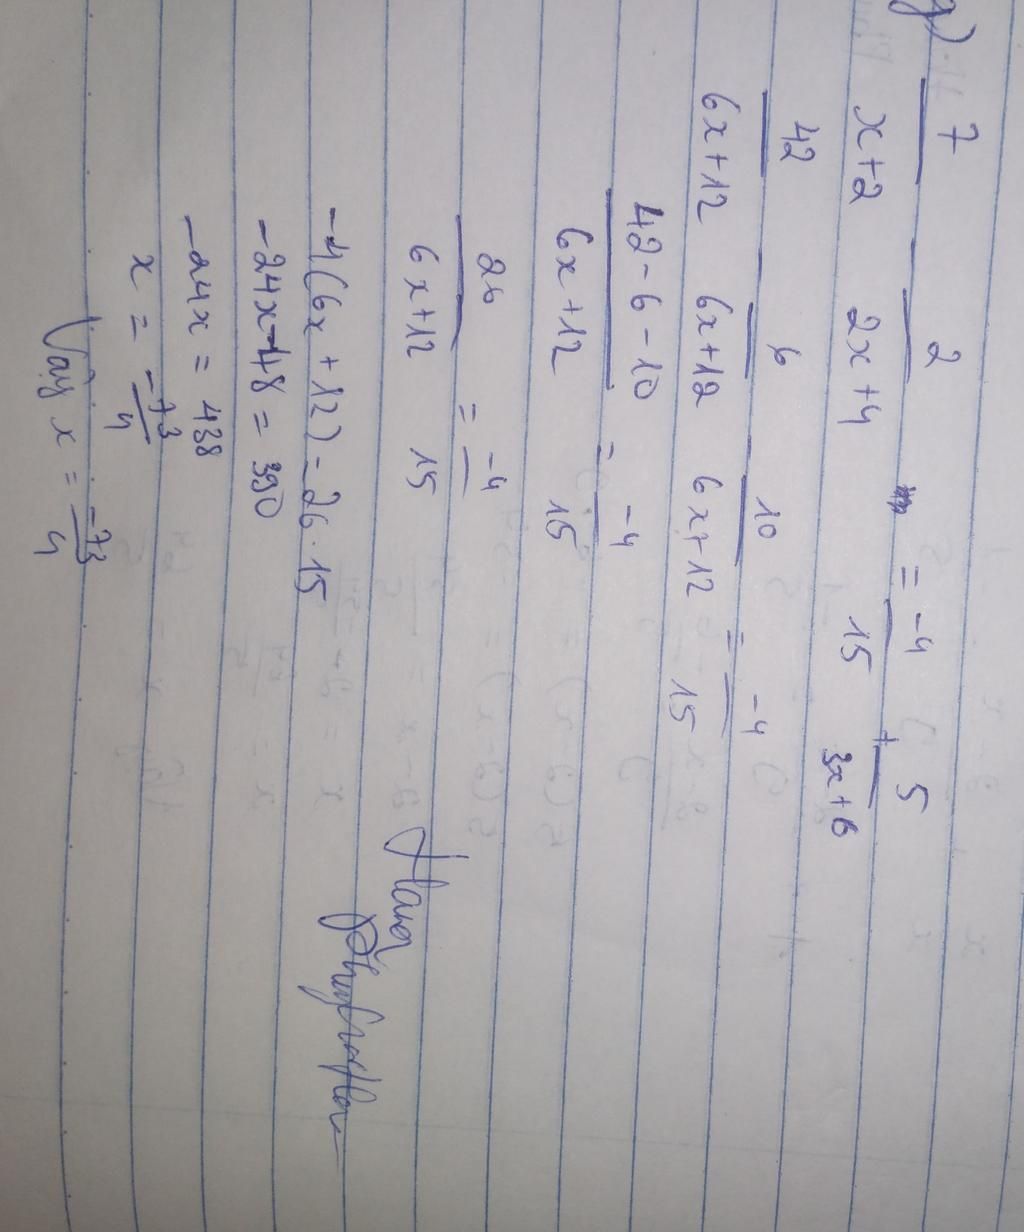 g) 7/(x+2) 2/(2x+4) = -4/15 + 5/(3x+6)
42/(6x+12) 6/(6x+12) 10/(6x+12) = -4/15
(42-6-10)/(6x+12) = -4/15
26/(6x+12) = -4/15
-4(6x+12) = 26.15
-24x-48 = 390
-24x = 438
x = -73/4
Vậy x = -73/4